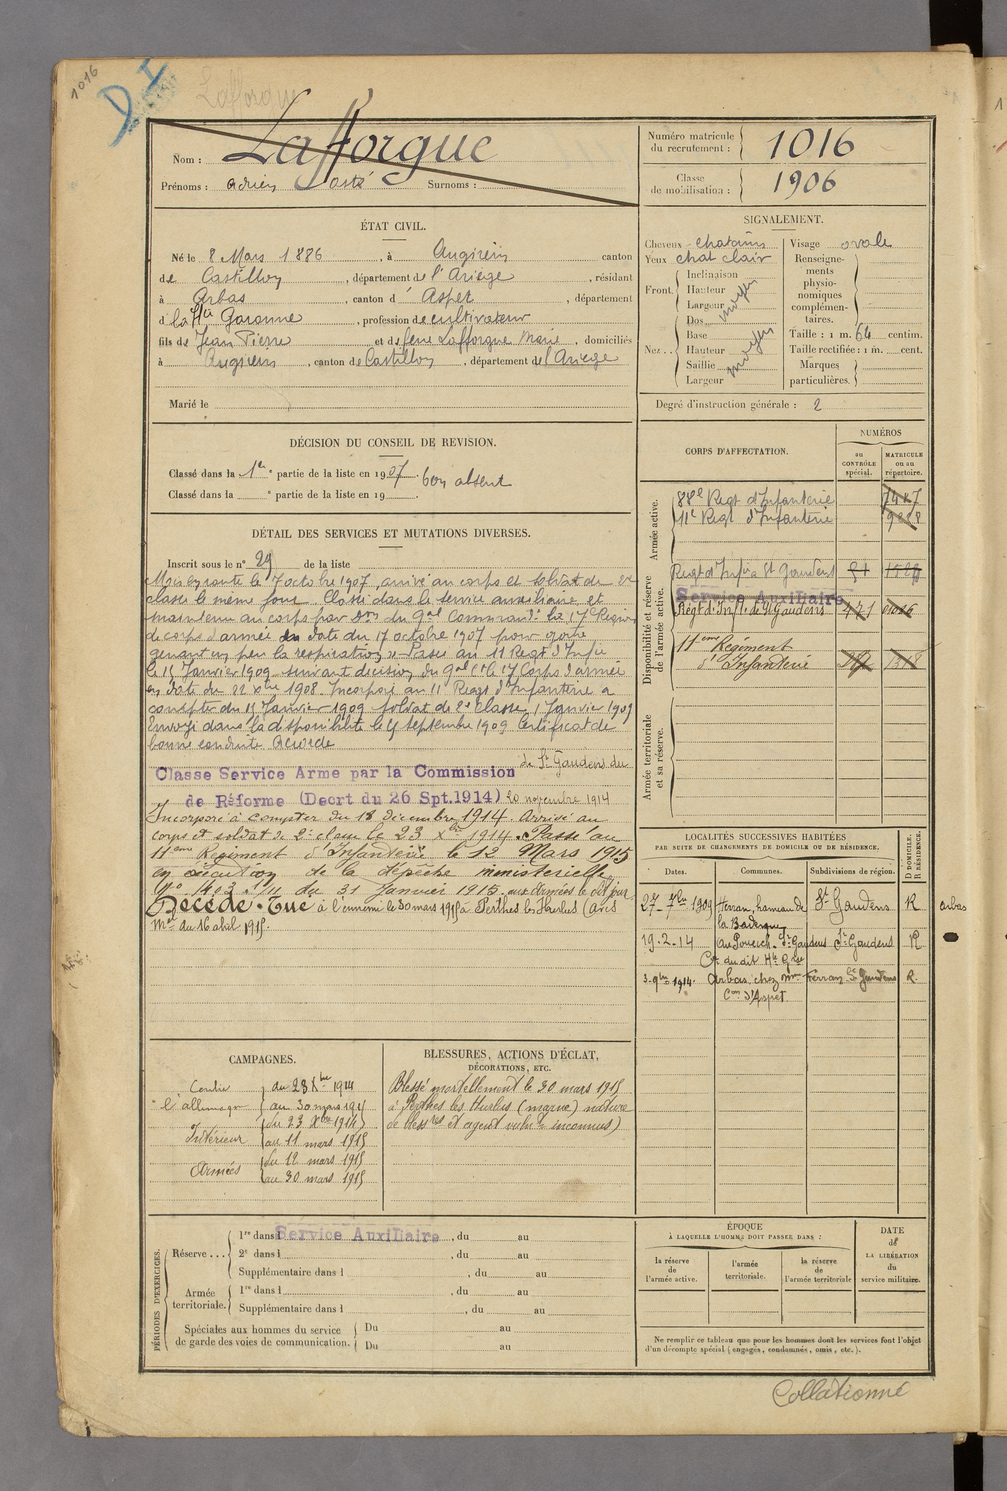 1016
D I
Lafforgue
Nom : Lafforgue
Prénoms : Adrien Surnoms :
Numéro matricule du recrutement : 1016
Classe de mobilisation : 1906
ÉTAT CIVIL.
Né le 8 Mars 1886, à Augirein canton
de Castillon, département de l'Ariège, résidant
à Arbas, canton d' Aspet, département
d la Hte Garonne, profession de cultivateur
fils de Jean Pierre et de feue Lafforgue Marie, domiciliés
à Augirein, canton de Castillon, département de l'Ariège
Marié le
SIGNALEMENT.
Cheveux chatains
Yeux chat clair
Front. Inclinaison
Hauteur moyen
Largeur
Nez. Dos
Base
Hauteur moyen
Saillie
Largeur
Visage ovale
Renseignements physionomiques complémentaires.
Taille : 1 m. 64 centim.
Taille rectifiée : 1 m. cent.
Marques particulières.
Degré d'instruction générale : 2
DÉCISION DU CONSEIL DE REVISION.
Classé dans la 1re partie de la liste en 1907. bon absent
Classé dans la e partie de la liste en 19
DÉTAIL DES SERVICES ET MUTATIONS DIVERSES.
Inscrit sous le n° 29 de la liste
Mis en route le 7 octobre 1907, arrivé au corps et soldat de 2e
classe le même jour. Classé dans le service auxiliaire et
maintenu au corps par Don du Gal Command. le 17e Région
de corps d'armée en date du 17 octobre 1907 pour goitre
gênant un peu la respiration. Passé au 11 Regt d'Infie
le 15 Janvier 1909 suivant décision du Gal Ct le 17 Corps d'armée
en date du 22 Xbre 1908. Incorporé au 11e Regt d'Infanterie a
compter du 15 Janvier 1909 soldat de 2e Classe 1 Janvier 1909
Envoyé dans la disponibilité le septembre 1909 Certificat de
bonne conduite Accordé
Classe Service Arme par la Commission de St Gaudens du
de Réforme (Decrt du 26 Spt.1914) 20 novembre 1914
Incorporé à compter du 18 décembre 1914. Arrivé au
corps et soldat de 2e classe le 23 Xbre 1914. Passé au
11eme Régiment d'Infanterie le 12 Mars 1915
en exécution de la dépêche ministerielle
No 1403 du 31 Janvier 1915. aux Armées le dit jour
Décédé. Tué à l'ennemi le 30 mars 1915 à Perthes les Hurlus (avis
Mel du 16 abril 1915.
CORPS D'AFFECTATION.
NUMÉROS
au CONTRÔLE spécial.
MATRICULE ou au répertoire.
Armée active.
88e Regt d'Infanterie
11e Regt d'Infanterie
Disponibilité et réserve de l'armée active.
Regt d'Infie St Gaudens
Service Auxiliaire
Régt d'Infie de St Gaudens
11eme Régiment
d'Infanterie
Armée territoriale et sa réserve.
LOCALITÉS SUCCESSIVES HABITÉES
PAR SUITE DE CHANGEMENTS DE DOMICILE OU DE RÉSIDENCE.
Dates. Communes. Subdivisions de région. D DOMICILE. R RÉSIDENCE.
27 7bre 1909 Herran, hameau de la St Gaudens R Arbas
19.2.14 St Gaudens St Gaudens R
Con du dit Hte Gne
3.9bre 1914. Arbas, chez Mme Ferran St Gaudens R.
Con d'Aspet
CAMPAGNES.
Contre l'allemagne du 23 Xbre 1914
au 30 mars 1915
Intérieur du 23 Xbre 1914
au 11 mars 1915
Armées du 12 mars 1915
au 30 mars 1915
BLESSURES, ACTIONS D'ÉCLAT,
DÉCORATIONS, ETC.
Blessé mortellement le 30 mars 1915
à Perthes les Hurlus (marne) nature
de blessres et agent vulnt inconnus)
PÉRIODES D'EXERCICES.
Réserve... 1re dans l Service Auxiliaire, du au
2e dans l , du au
Supplémentaire dans l , du au
Armée territoriale. 1re dans l , du au
Supplémentaire dans l , du au
Spéciales aux hommes du service de garde des voies de communication. Du au
Du au
ÉPOQUE
À LAQUELLE L'HOMME DOIT PASSER DANS :
la réserve de l'armée active.
l'armée territoriale.
la réserve de l'armée territoriale
DATE de LA LIBÉRATION du service militaire.
Ne remplir ce tableau que pour les hommes dont les services font l'objet
d'un décompte spécial (engagés, condamnés, omis, etc.).
Collationné